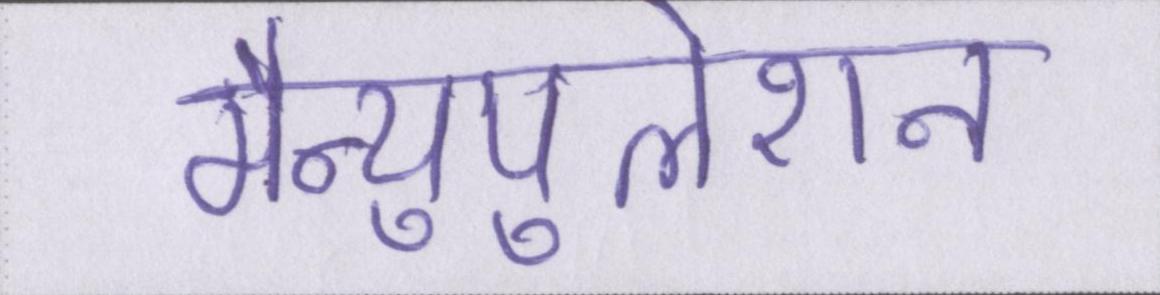 मैन्युपुलेशन